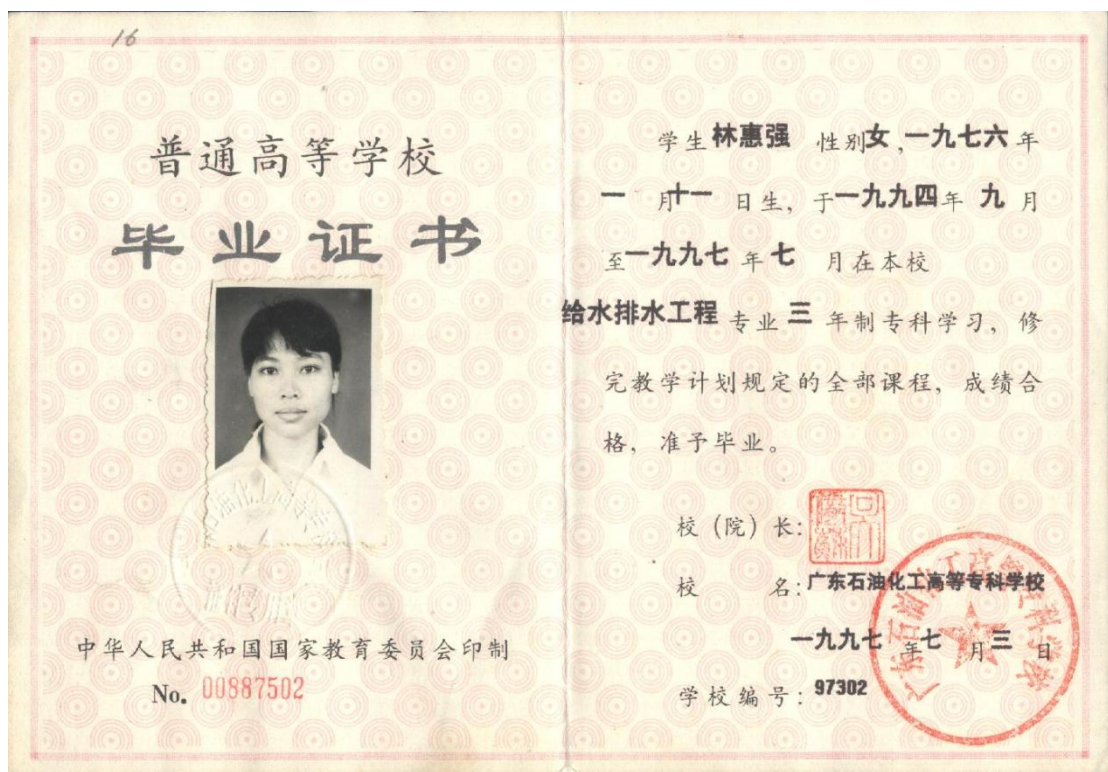 16
普通高等学校
毕业证书
中华人民共和国国家教育委员会印制
No. 00887502
学生林惠强 性别女,一九七六年
一月十一日生，于一九九四年九月
至一九九七年七月在本校
给水排水工程专业三年制专科学习，修
完教学计划规定的全部课程，成绩合
格，准予毕业。
校（院）长:
校名:广东石油化工高等专科学校
一九九七年七月三日
学校编号:97302
广东石油化工高等专科学校